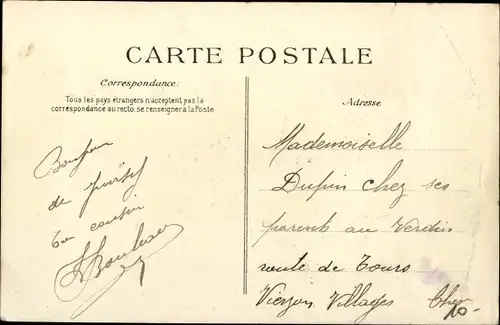 CARTE POSTALE
Correspondance:
Tous les pays étrangers n'acceptent pas la
correspondance au recto. se renseigner à la Poste
Bonjour
de Juvisy
Ton cousin
Adresse
Mademoiselle
Dupin chez ses
parent au Verdin
route de Tours
Vierzon Villages Cher
10-